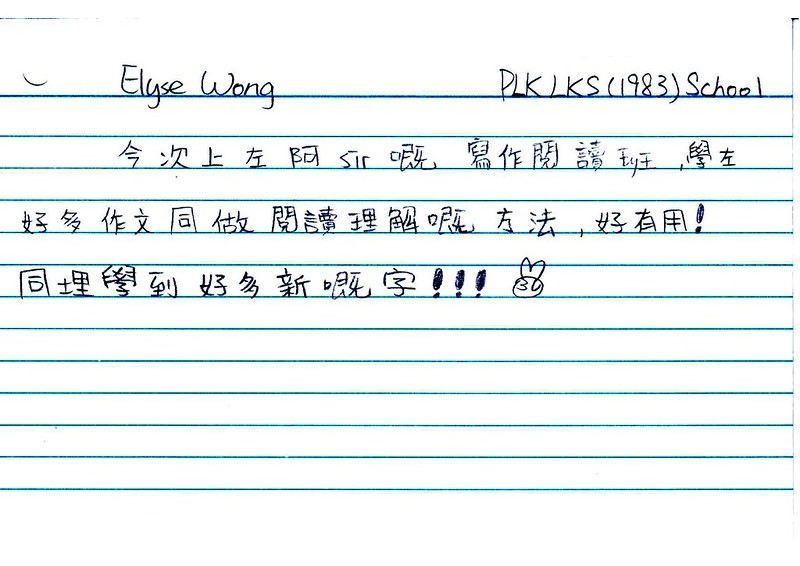 Elyse Wong PLK LKS (1983) School
今次上左阿 sir 嘅 寫作閱讀班,學左
好多作文同做閱讀理解嘅方法,好有用!
同埋學到好多新嘅字!!!